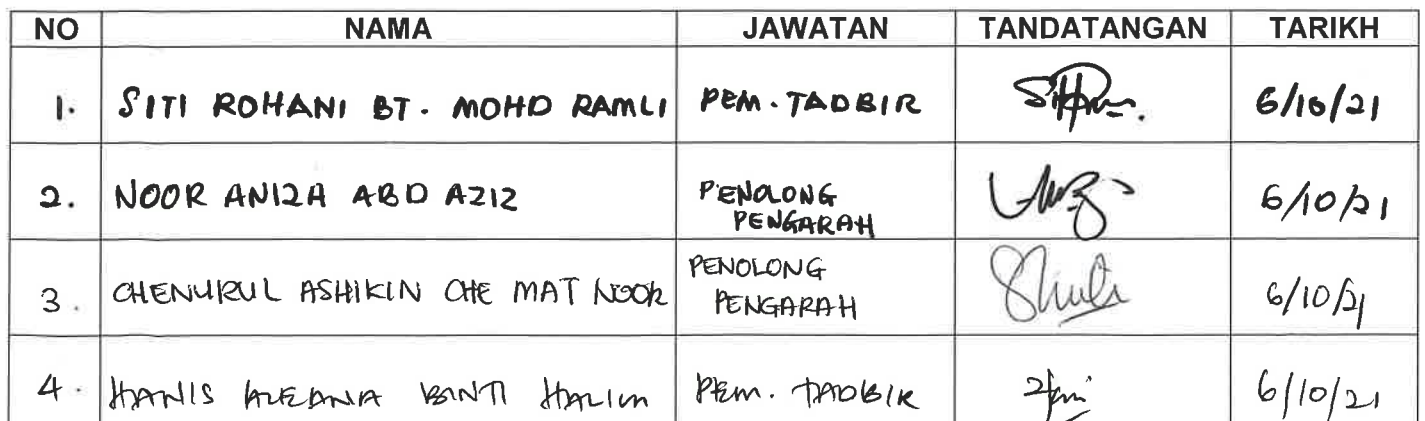 NO NAMA JAWATAN TANDATANGAN TARIKH
1. SITI ROHANI BT. MOHD RAMLI PEM. TADBIR 6/10/21
2. NOOR ANIZA ABD AZIZ PENOLONG
PENGARAH 6/10/21
3. CHENURUL ASHIKIN CHE MAT NOOR PENOLONG
PENGARAH 6/10/21
4. HANIS BINTI HALIM PEM. TADBIR 6/10/21